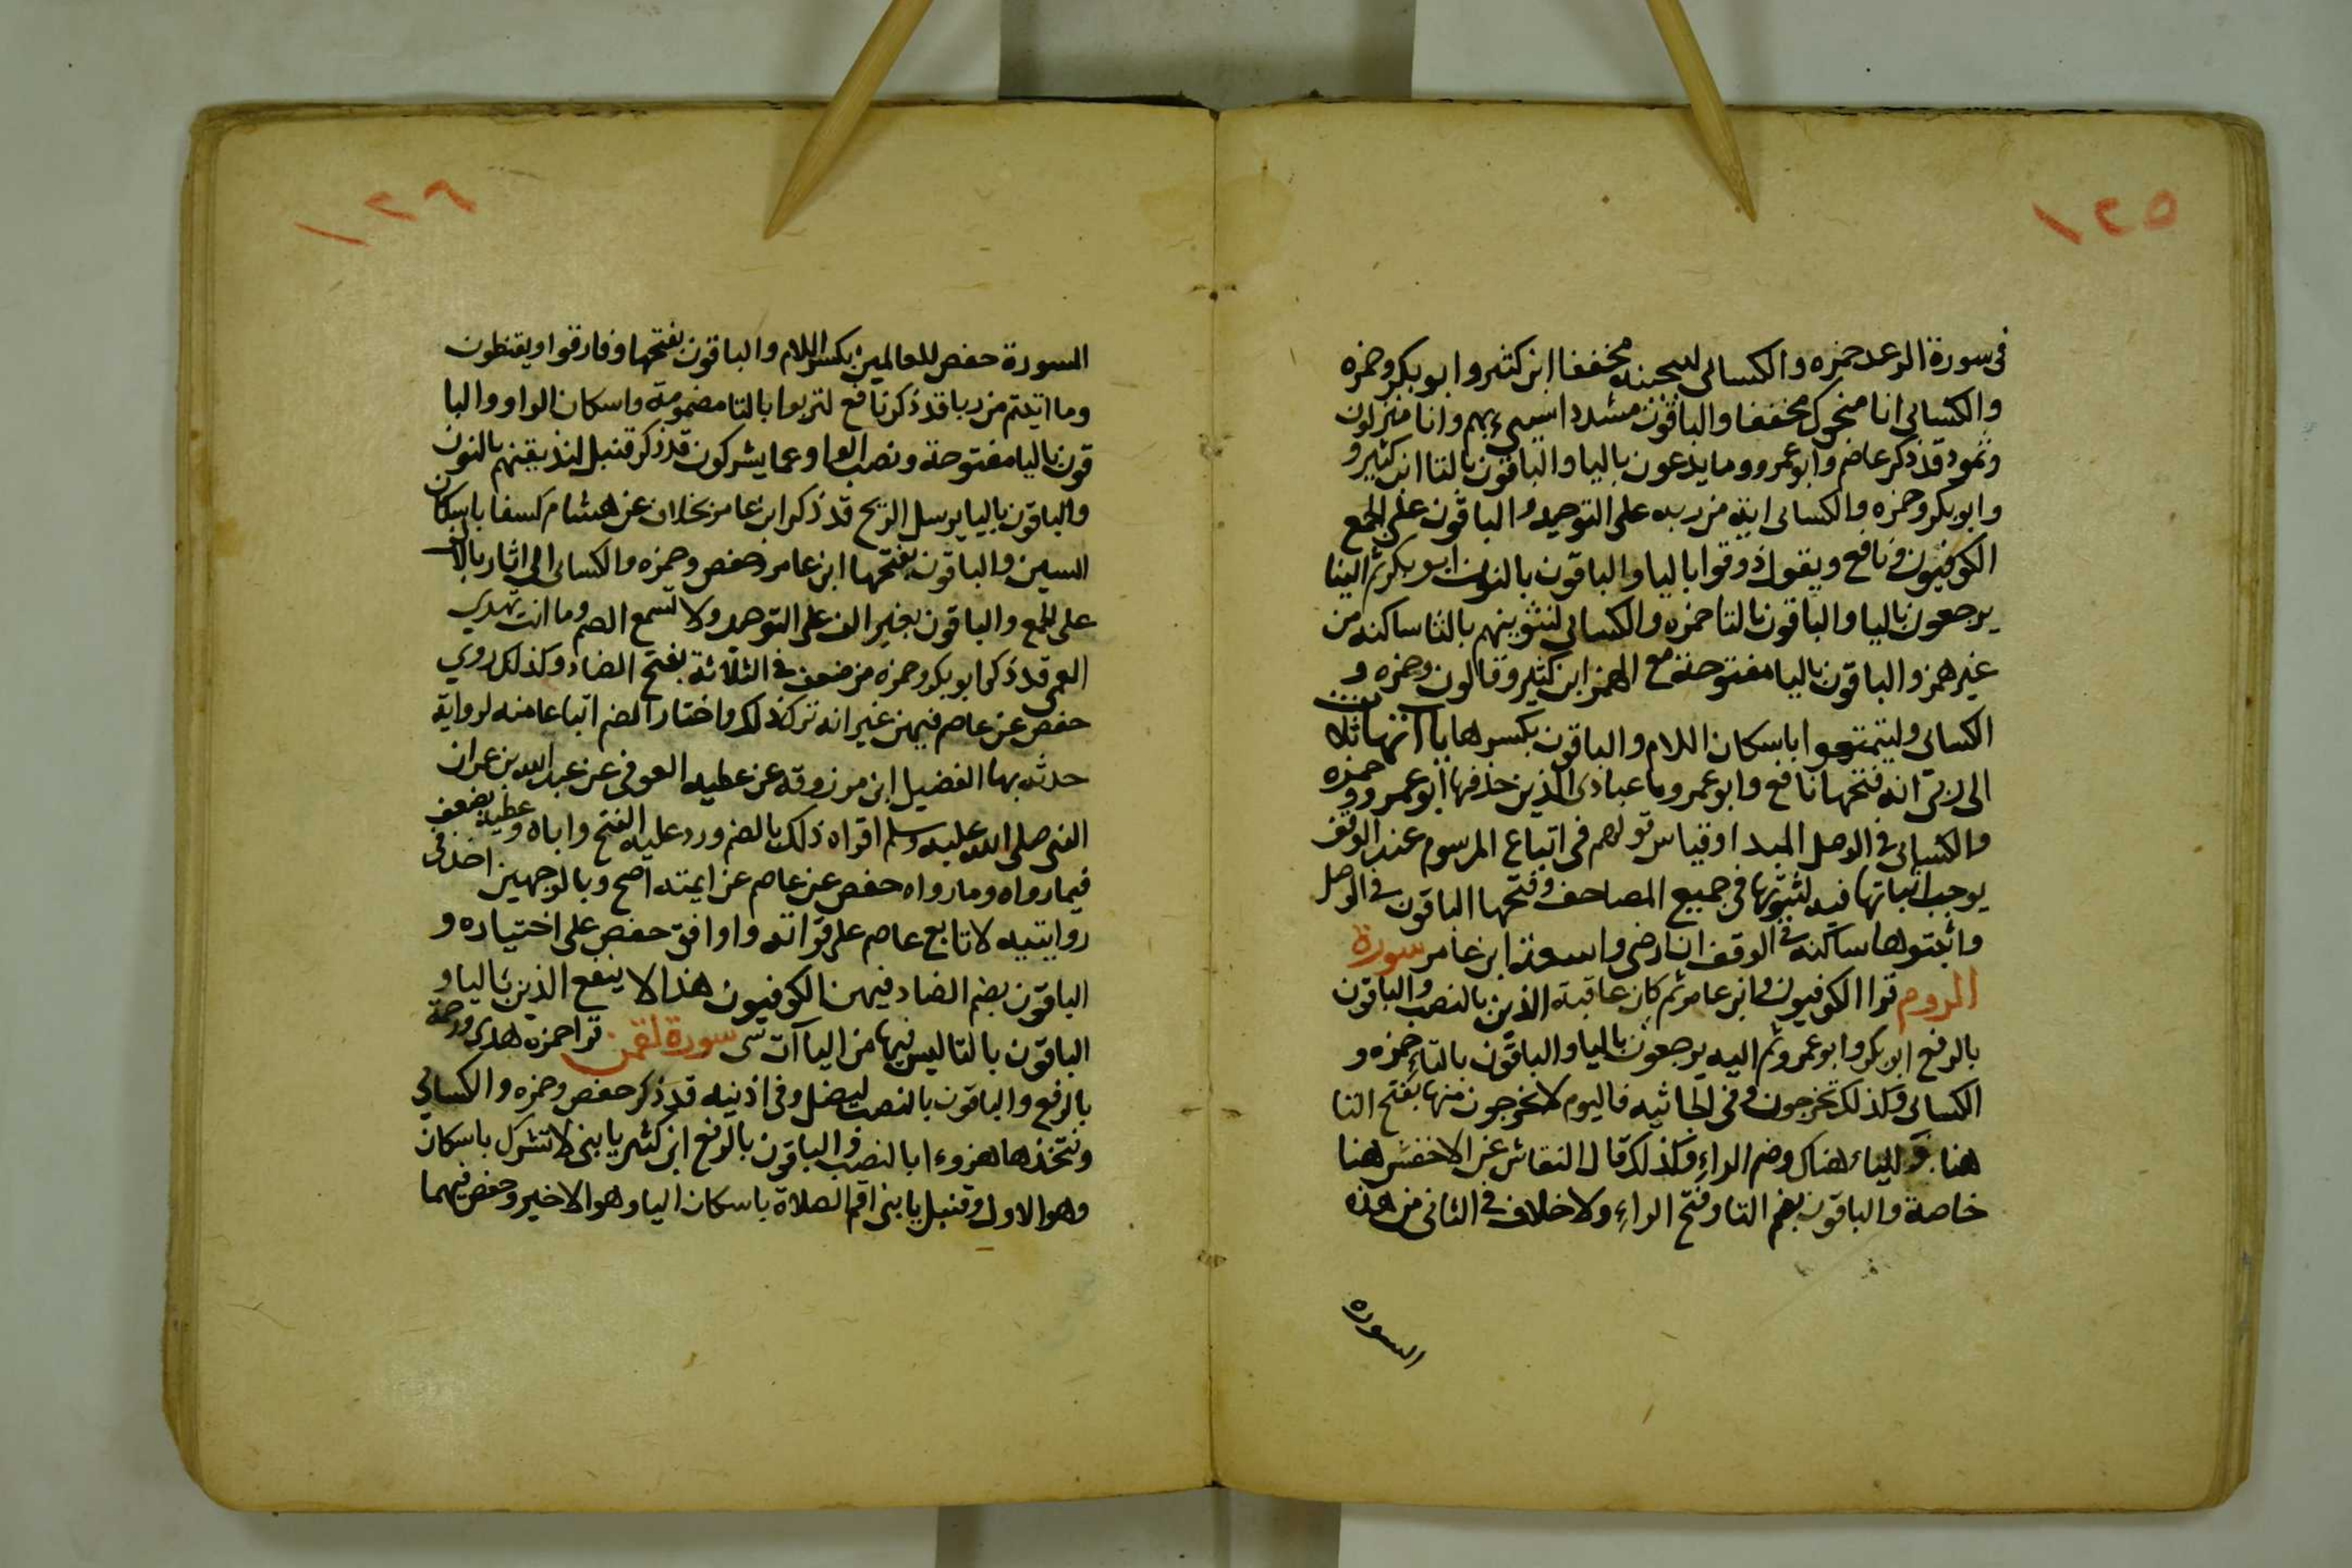 ١٢٥
فى سورة الرعد حمزه والكسائى لننجينه مخففا ابن كثير وابو بكر وحمزه
والكسائى انا منجوك مخففا والباقون مشددا سيىء بهم وانا منزلون
وثمود قد ذكر عاصم وابو عمرو وما يدعون باليا والباقون بالتا ابن كثير و
وابو بكر وحمزه والكسائى اية من ربه على التوحيد والباقون على الجمع
الكوفيون ونافع ويقول ذوقوا باليا والباقون بالنون ابو بكر ثم الينا
يرجعون باليا والباقون بالتا حمزه والكسائى لنثوينهم بالثا ساكنه من
غير همز والباقون باليا مفتوحة مع الهمز ابن كثير وقالون وحمزه و
الكسائى وليتمتعوا باسكان اللام والباقون بكسرها ياآتها ثلاث
الى ربى انه فتحها نافع وابو عمرو يا عبادى الذين حذفها ابو عمرو وحمزه
والكسائى فى الوصل المبدا وقياس قولهم فى اتباع المرسوم عند الوقف
يوجب اثباتها فيه لثبوتها فى جميع المصاحف وفتحها الباقون فى الوصل
واثبتوها ساكنة فى الوقف ان ارضى واسعة ابن عامر سورة
الروم قرا الكوفيون وابن عامر ثم كان عاقبة الذين بالنصب والباقون
بالرفع ابو بكر وابو عمرو ثم اليه يرجعون باليا والباقون بالتاء حمزه و
الكسائى وكذلك تخرجون وفى الجاثيه فاليوم لا يخرجون منها بفتح التا
هنا والياء هناك وضم الراء وكذلك قال النقاش عن الاخفش هنا
خاصة والباقون بضم التا وفتح الراء ولا خلاف فى الثانى من هذه
السورة
١٢٦
السورة حفص للعالمين بكسر اللام والباقون بفتحها وفارقوا ويقنطون
وما اتيتم من ربا قد ذكر نافع لتربوا بالتا مضمومة واسكان الواو والبا
قون باليا مفتوحة ونصب الواو عما يشركون قد ذكر قنبل لنذيقنهم بالنون
والباقون باليا يرسل الريح قد ذكر ابن عامر بخلاف عن هشام كسفا باسكان
السين والباقون بفتحها ابن عامر وحفص وحمزه والكسائى الى اثار بالالف
على الجمع والباقون بغير الف على التوحيد ولا تسمع الصم وما انت تهدى
العمى قد ذكر ابو بكر وحمزه من ضعف فى الثلاثة بفتح الضاد وكذلك روى
حفص عن عاصم فيهن غير انه ترك ذلك واختار الضم اتباعا منه لرواية
حدثه بها الفضيل ابن مرزوقه عن عطيه العوفى عن عبد الله بن عمر ان
النبى صلى الله عليه وسلم اقراه ذلك بالضم ورد عليه الفتح واباه وعطية يضعف
فيما رواه وما رواه حفص عن عاصم عن ايمته اصح وبالوجهين اخذ فى
روايتيه لاتابع عاصم على قراته واوافق حفص على اختياره و
الباقون بضم الضاد فيهن الكوفيون هنا لا ينفع الذين باليا و
الباقون بالتا ليس فيها من الياآت شى سورة لقمن قرا حمزه هدى ورحمة
بالرفع والباقون بالنصب ليضل وفى اذنيه قد ذكر حفص وحمزه والكسائى
ونتخذها هزوءا بالنصب والباقون بالرفع ابن كثير يا بنى لا تشرك باسكان
وهو الاول وقنبل يا بنى اقم الصلاة باسكان اليا وهو الاخير وحفص فيهما